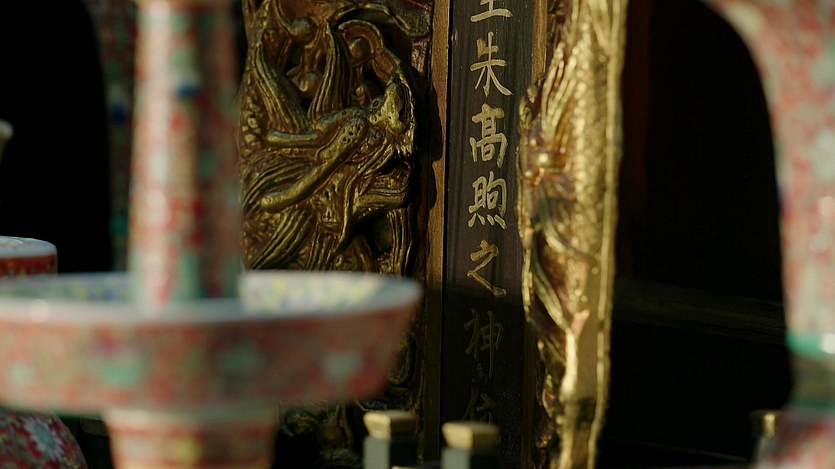 王朱高煦之神位